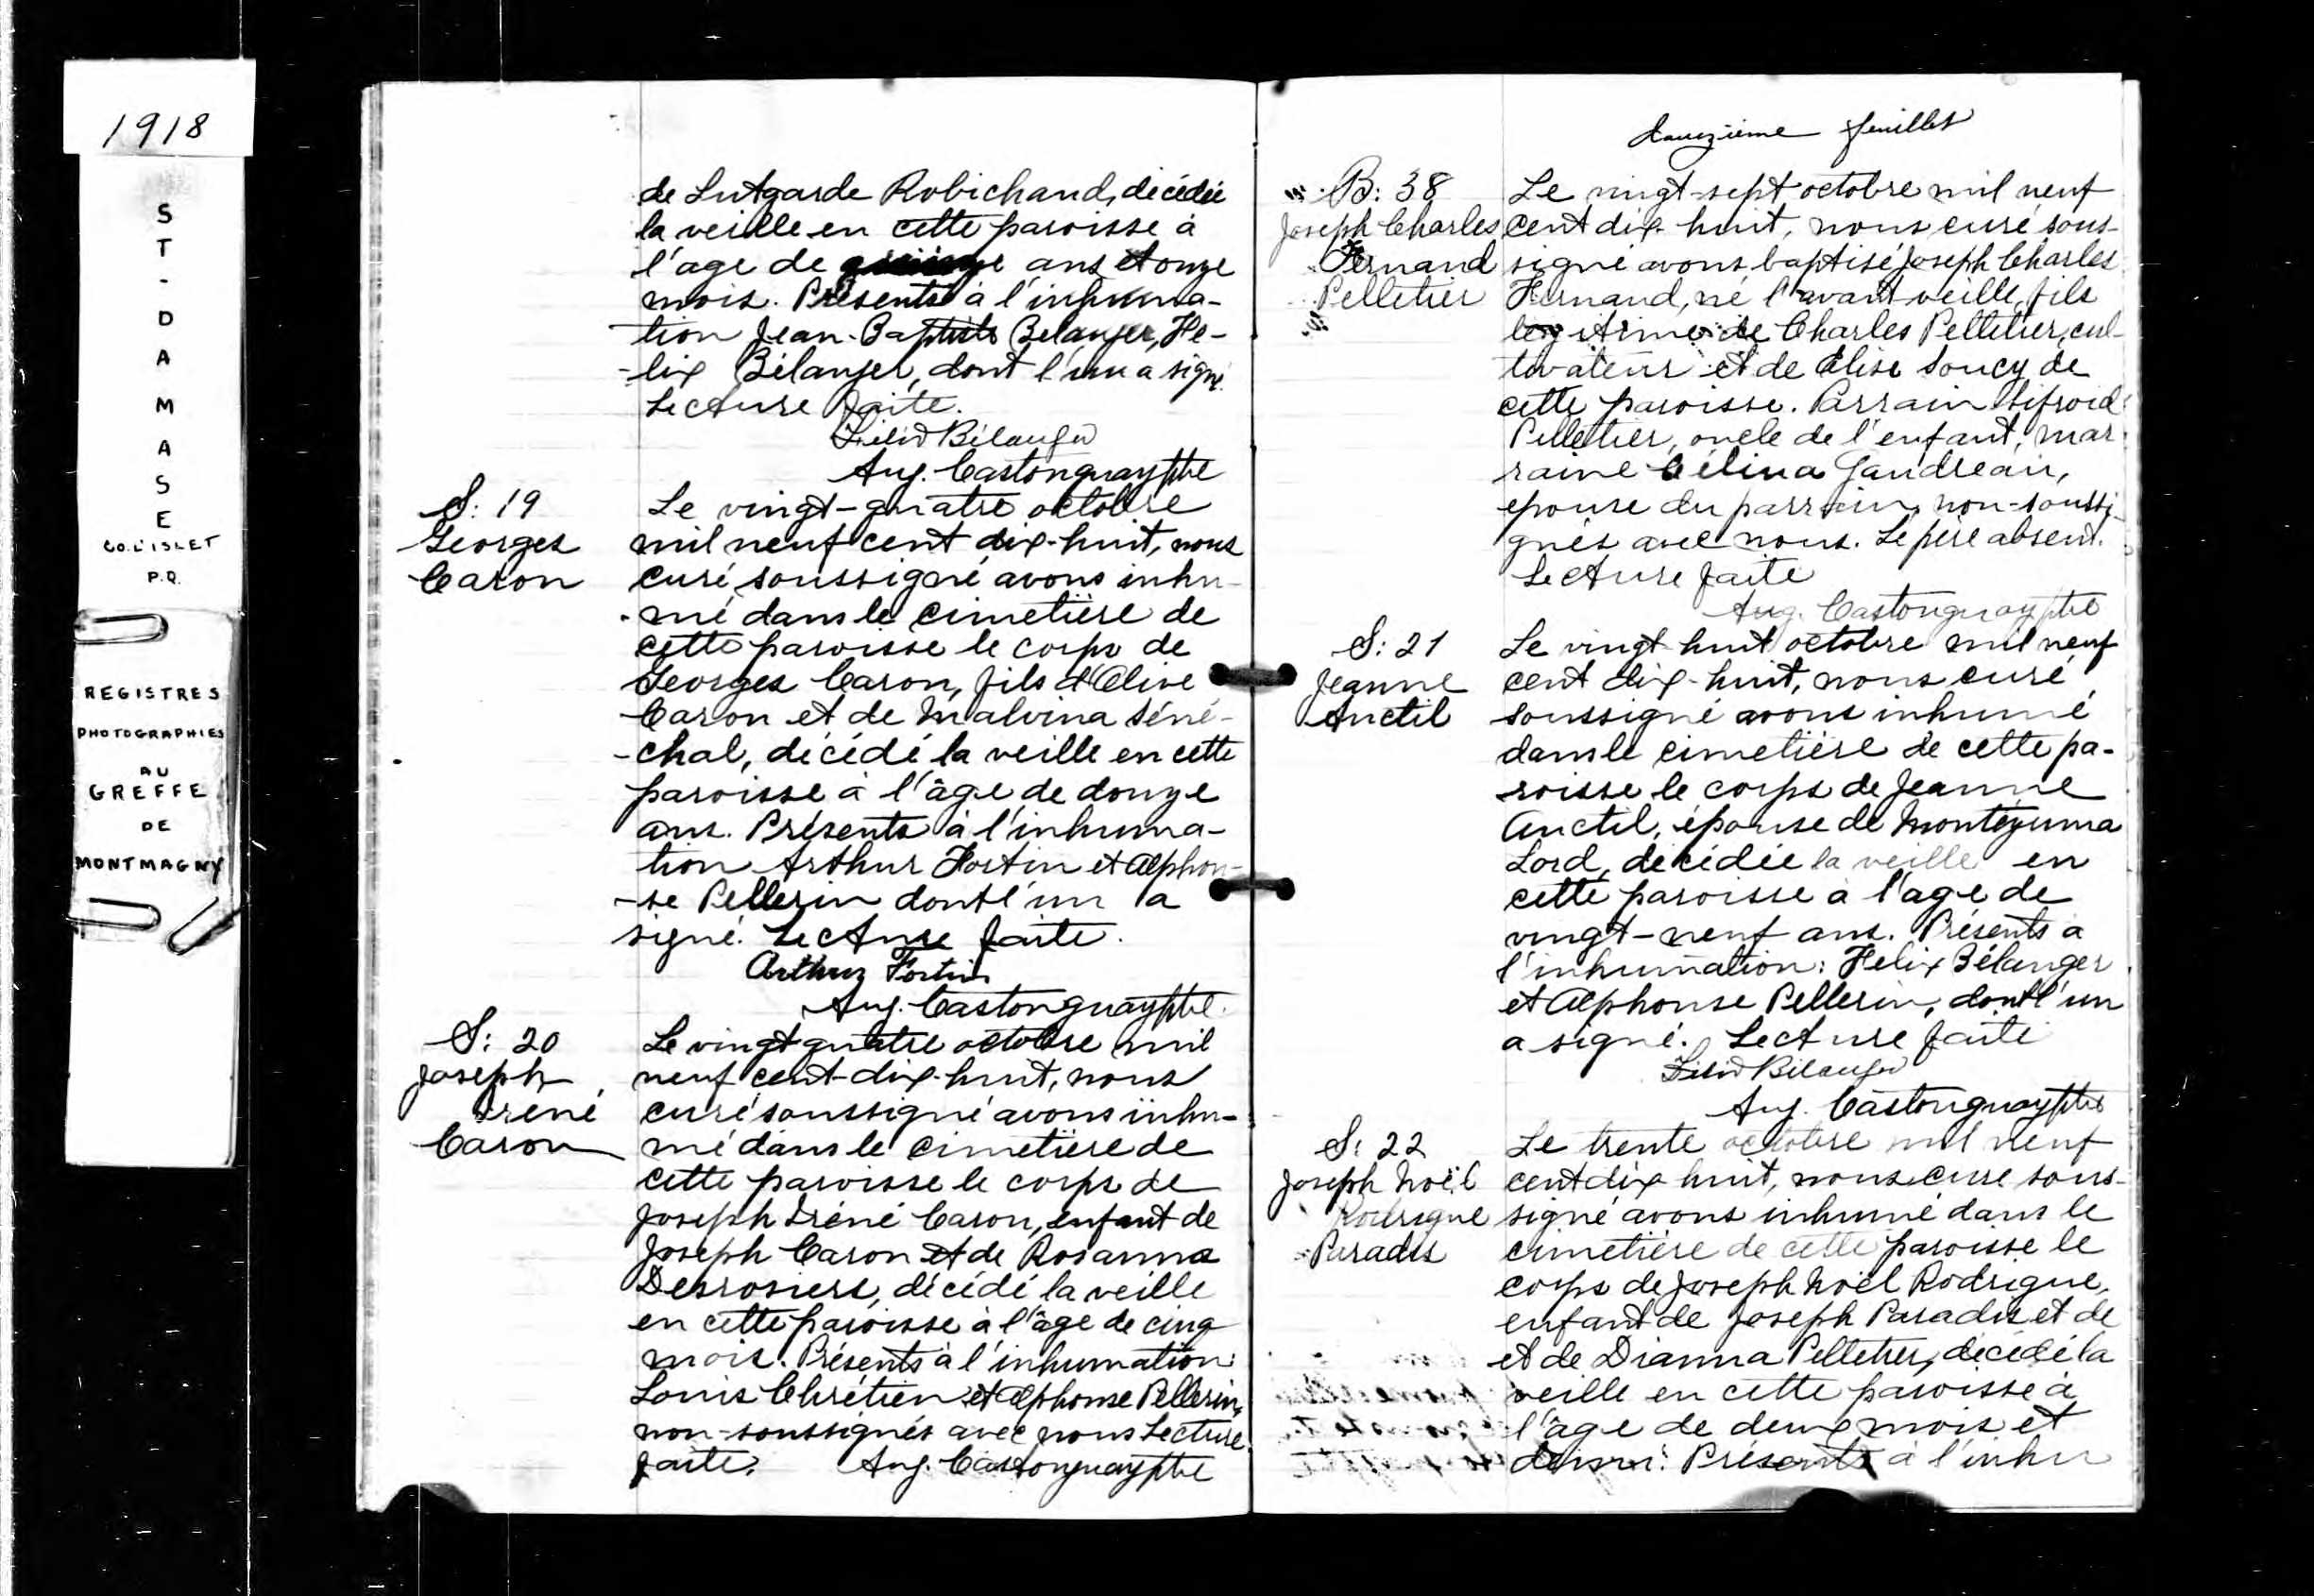 1918
S
T
-
D
A
M
A
S
E
CO. L'ISLET
P.Q.
REGISTRES
PHOTOGRAPHIES
AU
GREFFE
DE
MONTMAGNY
de Lutgarde Robichaud, décédée
la veille en cette paroisse à
l'age de ans et onze
mois. Présents à l'inhuma-
tion Jean-Baptiste Bélanger, Fe-
-lix Bélanger, dont l'un a signé.
Lecture faite.
Félix Bélanger
Aug. Castonguay ptre
S: 19
Georges
Caron
Le vingt-quatre octobre
mil neuf cent dix-huit, nous
curé soussigné avons inhu-
-mé dans le cimetière de
cette paroisse le corps de
Georges Caron, fils d'Olive
Caron et de Malvina Séné-
-chal, décédé la veille en cette
paroisse à l'âge de douze
ans. Présents à l'inhuma-
tion Arthur Fortin et Alphon-
-se Pellerin dont l'un a
signé. Lecture faite.
Arthur Fortin
Aug. Castonguay ptre.
S: 20
Joseph
Iréné
Caron
Le vingt quatre octobre mil
neuf cent-dix-huit, nous
curé soussigné avons inhu-
mé dans le cimetière de
cette paroisse le corps de
Joseph Iréné Caron, enfant de
Joseph Caron et de Rosanna
Desrosiers, décédé la veille
en cette paroisse à l'âge de cinq
mois. Présents à l'inhumation:
Louis Chrétien et Alphonse Pellerin,
non-soussignés avec nous Lecture
faite. Aug. Castonguay ptre
douzième feuillet
B: 38
Joseph Charles
Fernand
Pelletier
Le vingt-sept octobre mil neuf
cent dix-huit, nous curé sous-
signé avons baptisé Joseph Charles
Fernand, né l'avant veille, fils
légitime de Charles Pelletier, cul-
tivateur et de Elise Soucy de
cette paroisse. Parrain Sifroid
Pelletier, oncle de l'enfant, mar
raine Célina Gaudreau,
epouse du parrain, non-soussi-
gnés avec nous. Le père absent.
Lecture faite
Aug. Castonguay ptre
S: 21
Jeanne
Anctil
Le vingt huit octobre mil neuf
cent dix-huit, nous curé
soussigné avons inhumé
dans le cimetière de cette pa-
roisse le corps de Jeanne
Anctil, épouse de Montézuma
Lord, décédée la veille en
cette paroisse à l'age de
vingt-neuf ans. Présents a
l'inhumation: Felix Bélanger
et Alphonse Pellerin, dont l'un
a signé. Lecture faite
Félix Bélanger
Aug. Castonguay ptre
S: 22
Joseph Noël
Rodrigue
Paradis
Le trente octobre mil neuf
cent dix huit, nous curé sous-
signé avons inhumé dans le
cimetière de cette paroisse le
corps de Joseph Noël Rodrigue,
enfant de Joseph Paradis et de
et de Dianna Pelletier, décédé la
veille en cette paroisse à
l'âge de deux mois et
demi. Présents à l'inhu